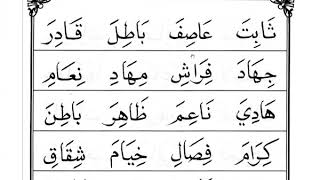 ثَابِتَ عَاصِفَ بَاطِلَ قَادِرَ
جِهَادَ فِرَاشِ مِهَادِ نِعَامِ
هَادِيَ نَاعِمَ ظَاهِرَ بَاطِنَ
كِرَامَ فِصَالِ خِيَامَ شِقَاقِ